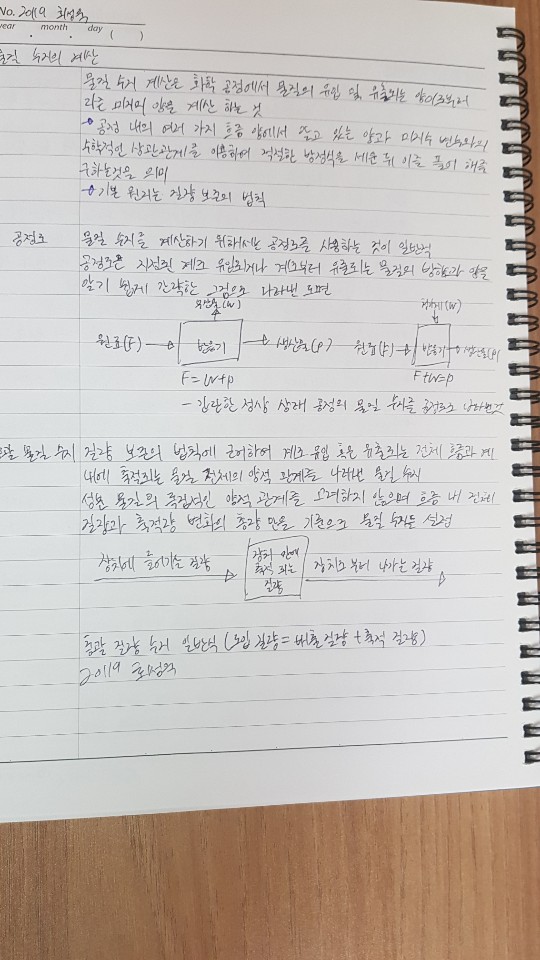 No. 20119 최성욱
year . month . day ( )
물질 수지의 계산
물질 수지 계산은 화학 공정에서 물질의 유입 및 유출되는 양으로부터
다른 미지의 양을 계산 하는 것
공정 내의 여러 가지 흐름 양에서 알고 있는 양과 미지수 변수와의
수학적인 상관관계를 이용하여 적정한 방정식을 세운 뒤 이를 풀어 해를
구하는것을 의미
기본 원리는 질량 보존의 법칙
공정도
물질 수지를 계산하기 위해서는 공정도를 사용하는 것이 일반적
공정도은 지정된 계로 유입되거나 계로부터 유출되는 물질의 방향과 양을
알기 쉽게 간략한 그림으로 나타낸 도면
(W) (W)
원료(F) 반응기 생산물(P) 원료(F) 반응기 생산물(P)
F=W+P F+W=P
- 간단한 정상 상태 공정의 물질 수지를 공정도로 나타낸것
총괄 물질 수지
질량 보존의 법칙에 근거하여 계로 유입 혹은 유출되는 전체 흐름과 계
내에 축적되는 물질 전체의 양적 관계를 나타낸 물질 수지
성분 물질의 독립적인 양적 관계를 고려하지 않으며 흐름 내 전체
질량과 축적량 변화의 총량 만을 기준으로 물질 수지를 설정
장치에 들어가는 질량
장치 안에
축적 되는
질량
장치로 부터 나가는 질량
총괄 질량 수지 일반식 (도입 질량 = 배출 질량 + 축적 질량)
20119 최성욱